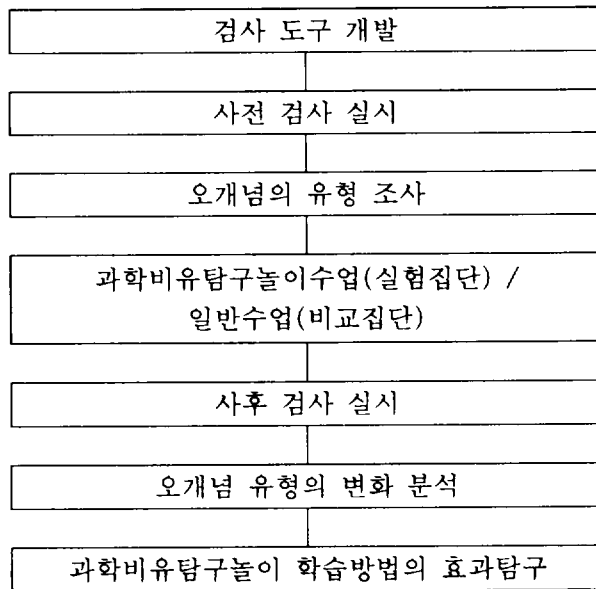 검사 도구 개발
사전 검사 실시
오개념의 유형 조사
과학비유탐구놀이수업(실험집단) /
일반수업(비교집단)
사후 검사 실시
오개념 유형의 변화 분석
과학비유탐구놀이 학습방법의 효과탐구